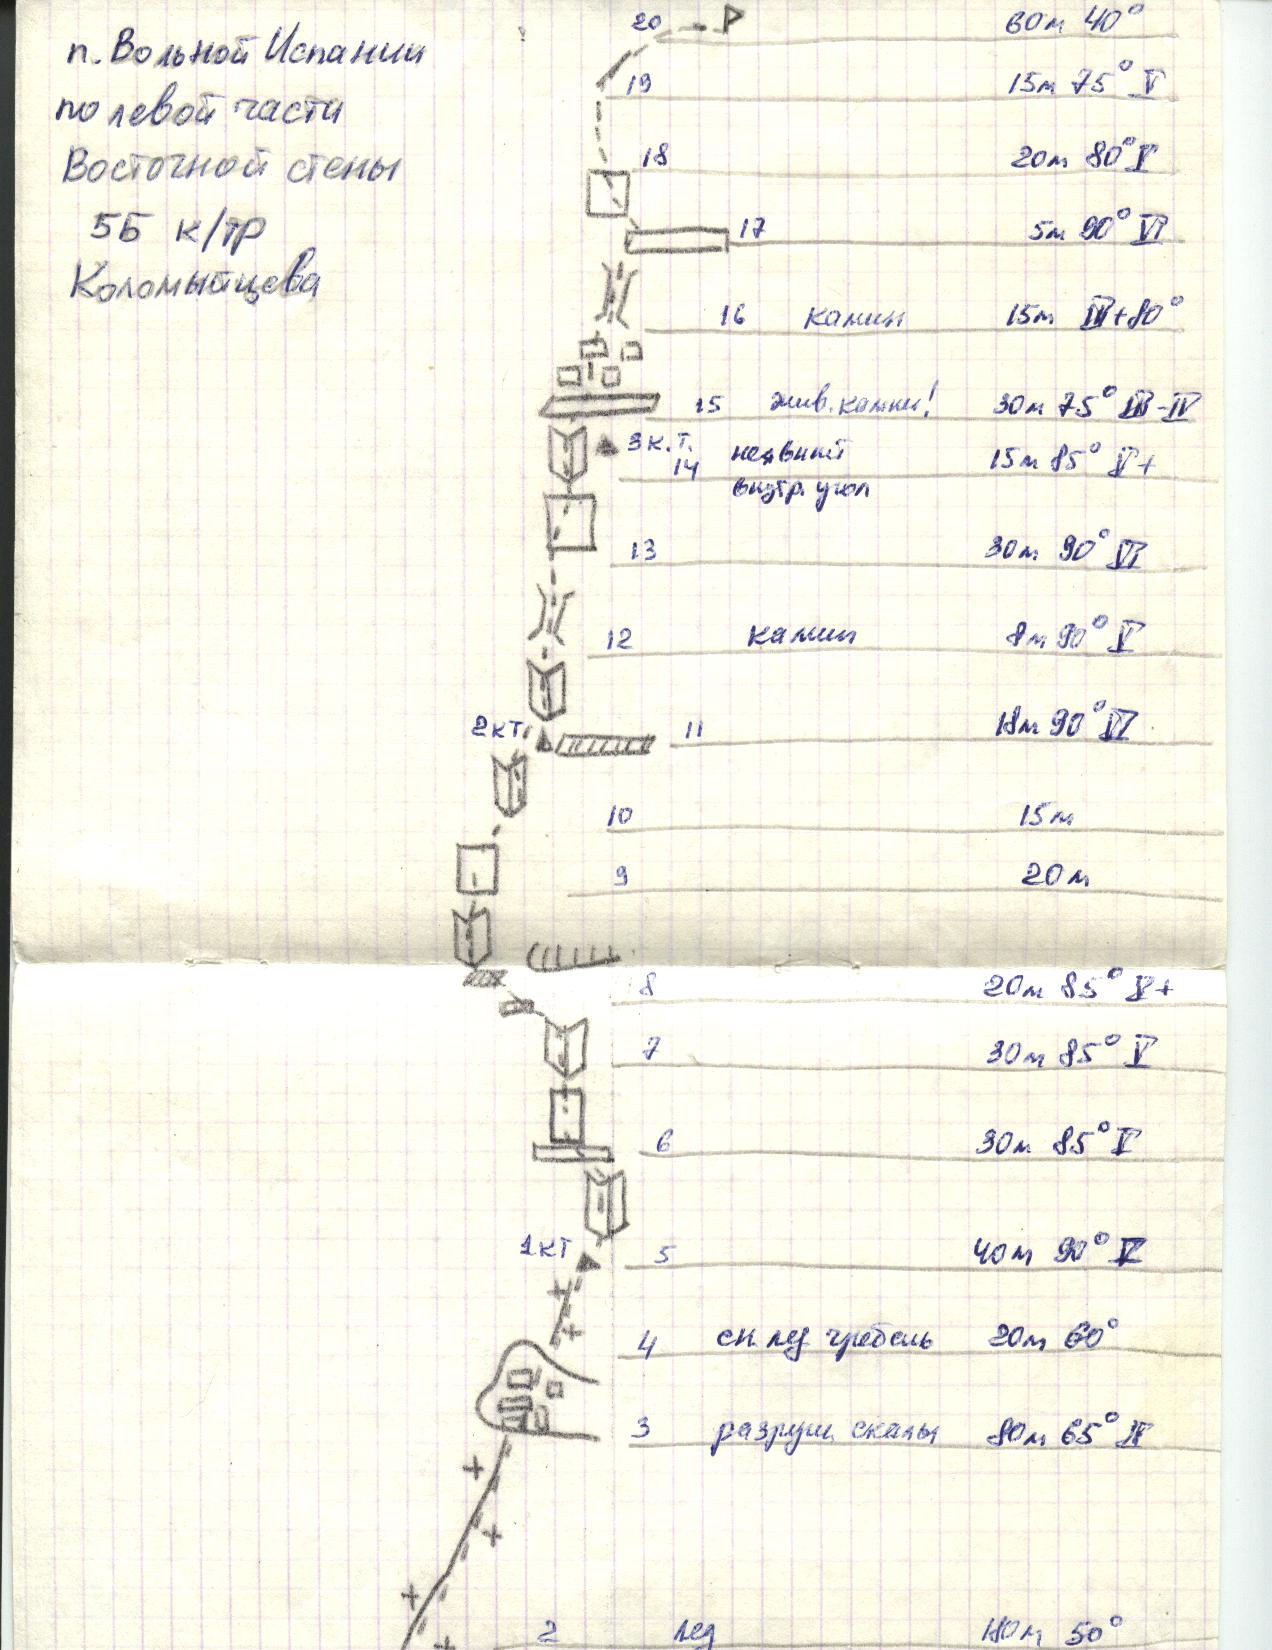 п. Вольной Испании
по левой части
Восточной стены
5Б к/тр
Коломыйцева
20 60м 40°
19 15м 75° V
18 20м 80° V
17 5м 90° VI
16 камин 15м III+80°
15 жив. камни! 30м 75° III-IV
3 к.т.
14 неявный 15м 85° V+
внутр. угол
13 30м 90° VI
12 камин 8м 90° V
2кт 11 18м 90° VI
10 15м
9 20м
8 20м 85° V+
7 30м 85° V
6 30м 85° V
1кт 5 40м 90° V
4 сн. лед гребень 20м 60°
3 разруш. скалы 80м 65°
2 лед 180м 50°